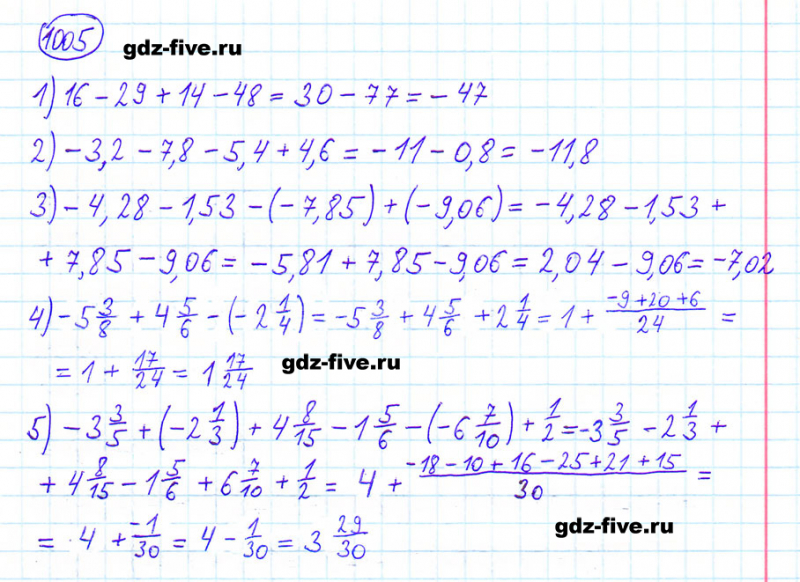 1005 gdz-five.ru
1) 16 − 29 + 14 − 48 = 30 − 77 = − 47
2) − 3,2 − 7,8 − 5,4 + 4,6 = − 11 − 0,8 = − 11,8
3) − 4,28 − 1,53 − (− 7,85) + (− 9,06) = − 4,28 − 1,53 +
+ 7,85 − 9,06 = − 5,81 + 7,85 − 9,06 = 2,04 − 9,06 = − 7,02
4) − 5 3/8 + 4 5/6 − (− 2 1/4) = − 5 3/8 + 4 5/6 + 2 1/4 = 1 + (−9 + 20 + 6)/24 =
= 1 + 17/24 = 1 17/24 gdz-five.ru
5) − 3 3/5 + (− 2 1/3) + 4 8/15 − 1 5/6 − (− 6 7/10) + 1/2 = − 3 3/5 − 2 1/3 +
+ 4 8/15 − 1 5/6 + 6 7/10 + 1/2 = 4 + (−18 − 10 + 16 − 25 + 21 + 15)/30 =
= 4 + −1/30 = 4 − 1/30 = 3 29/30 gdz-five.ru